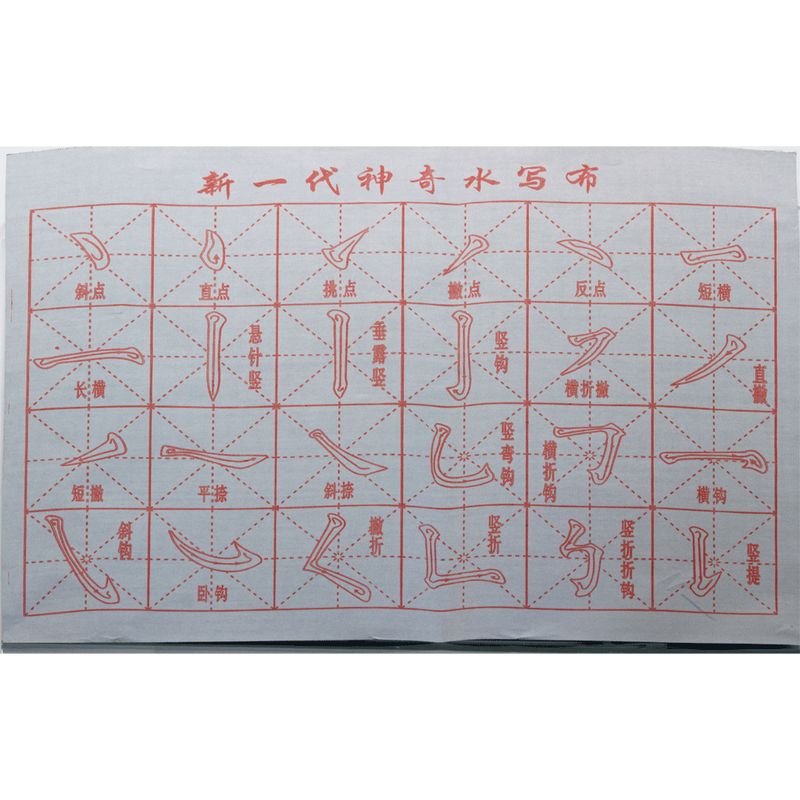 新一代神奇水写布
斜点
直点
挑点
撇点
反点
短横
长横
悬针竖
垂露竖
竖钩
横折撇
直撇
短撇
平捺
斜捺
竖弯钩
横折钩
横钩
斜钩
卧钩
撇折
竖折
竖折折钩
竖提